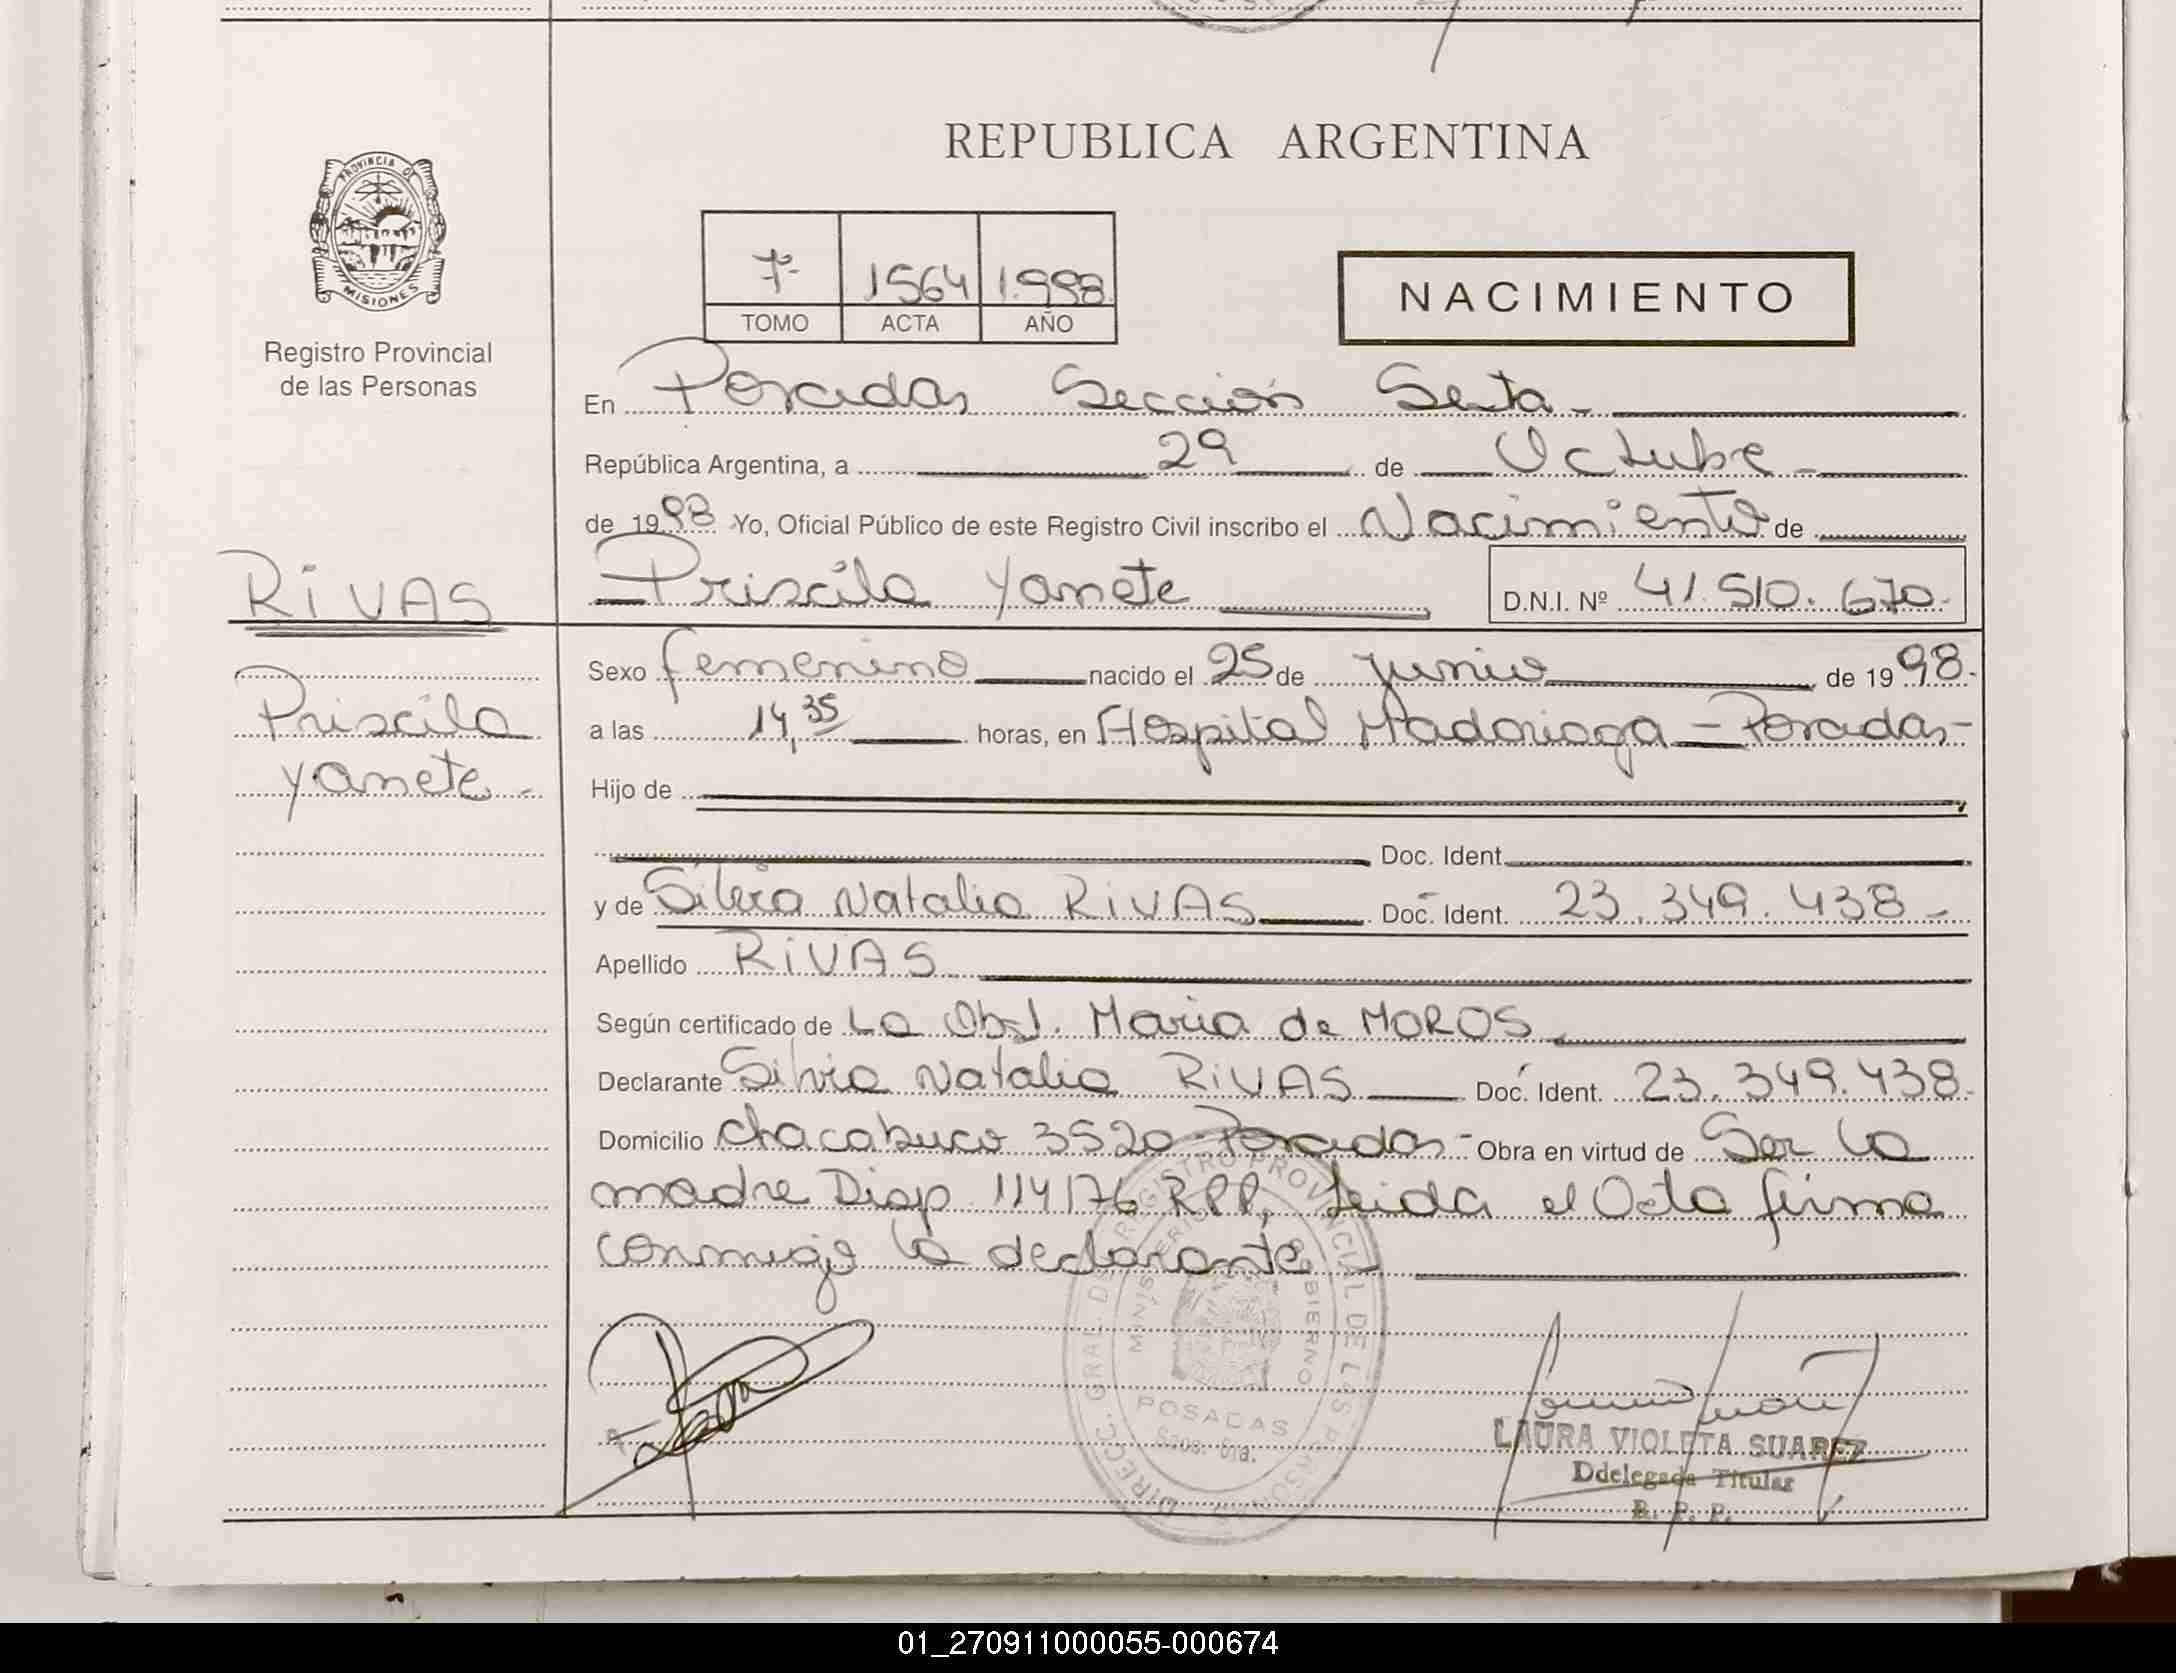 REPUBLICA ARGENTINA
PROVINCIA DE
MISIONES
Registro Provincial
de las Personas
7º 1564 1.998
TOMO ACTA AÑO
NACIMIENTO
En Posadas Sección Sexta -
República Argentina, a 29 de Octubre -
de 1998 Yo, Oficial Público de este Registro Civil inscribo el Nacimiento de
RIVAS
Priscila Yanete D.N.I. Nº 41.510.670-
Priscila
Yanete -
Sexo femenino nacido el 25 de junio de 1998.-
a las 14,35 horas, en Hospital Madariaga - Posadas -
Hijo de
Doc. Ident.
y de Silvia Natalia RIVAS Doc. Ident. 23.349.438 -
Apellido RIVAS
Según certificado de La Obst. Maria de MOROS
Declarante Silvia Natalia RIVAS Doc. Ident. 23.349.438-
Domicilio Chacabuco 3520 - Posadas - Obra en virtud de Ser la
madre Disp. 114/76 RPP, Leida el Acta firma
conmigo la declarante
DIRECC. GRAL. DE REGISTRO PROVINCIAL DE LAS PERSONAS
MINISTERIO GOBIERNO
POSADAS
LAURA VIOLETA SUAREZ
Ddelegada Titular
R. P. P.
01_270911000055-000674